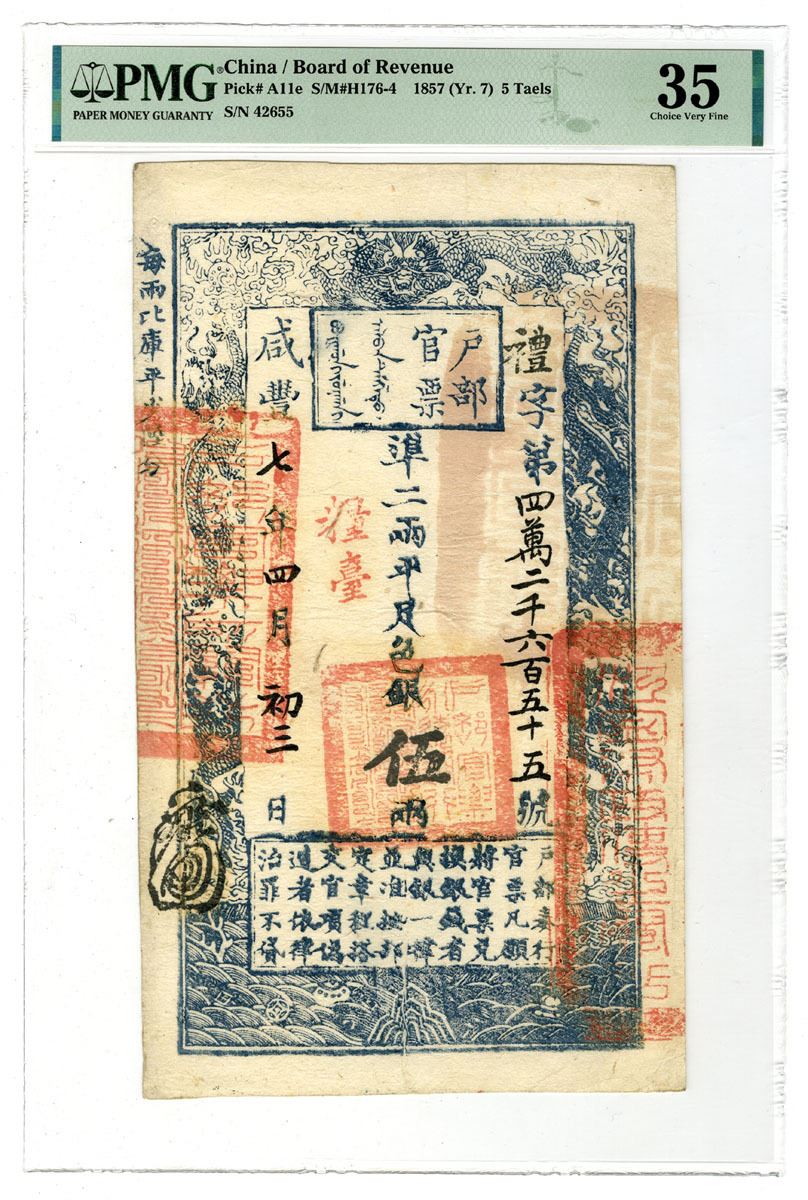 PMG®
PAPER MONEY GUARANTY
China / Board of Revenue
Pick# A11e S/M#H176-4 1857 (Yr. 7) 5 Taels
S/N 42655
35
Choice Very Fine
禮字第四萬二千六百五十五號
戶部
官票
準二兩平足色銀伍兩
糧臺
咸豐七年四月初三日
每兩比庫平
戶部奏行
官票凡願
將官票兌
換銀錢者
與銀一律
並准按部
定章程搭
交官項偽
造者依律
治罪不貸